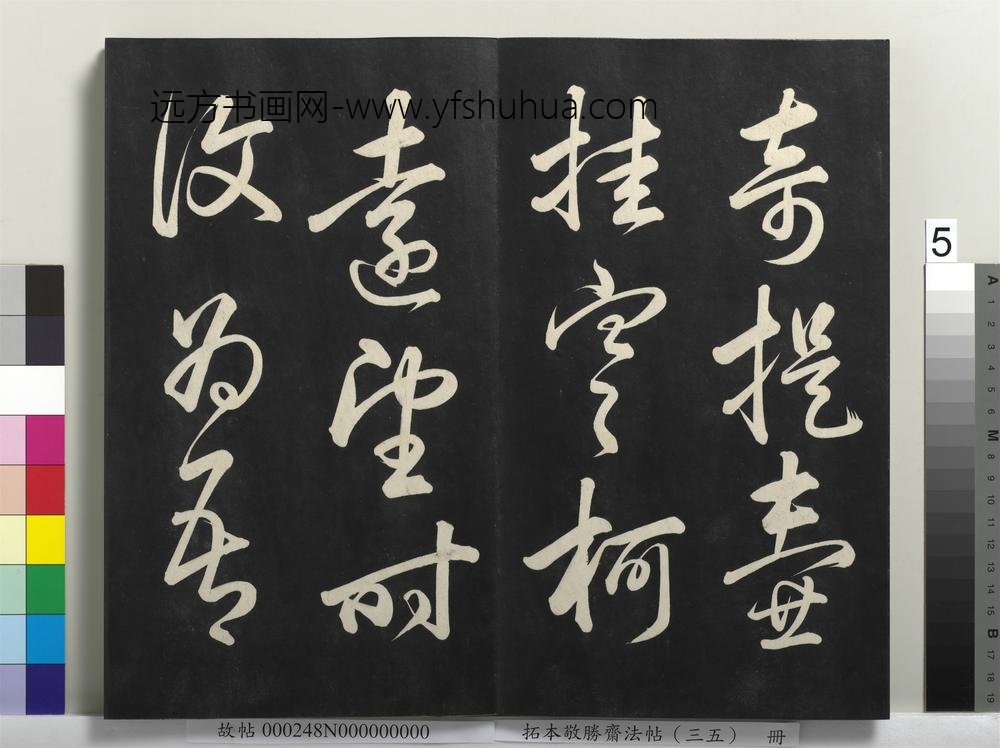 远方书画网-www.yfshuhua.com
奇提壶
挂寒柯
远望时
复为吾
5
A
1
2
3
4
5
6
M
8
9
10
11
12
13
14
15
B
17
18
19
故帖 000248N000000000
拓本敬勝齋法帖（三五） 冊